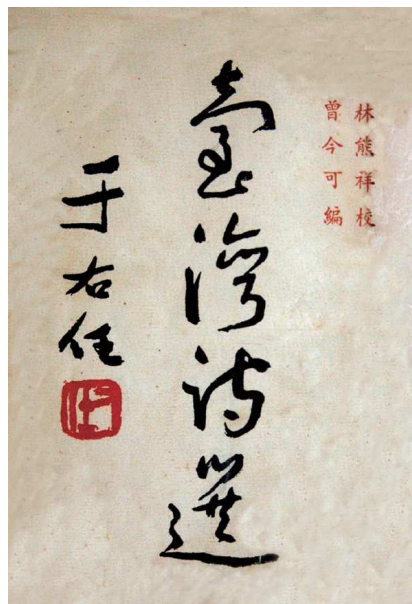 林熊祥校
曾今可編
臺灣詩選
于右任